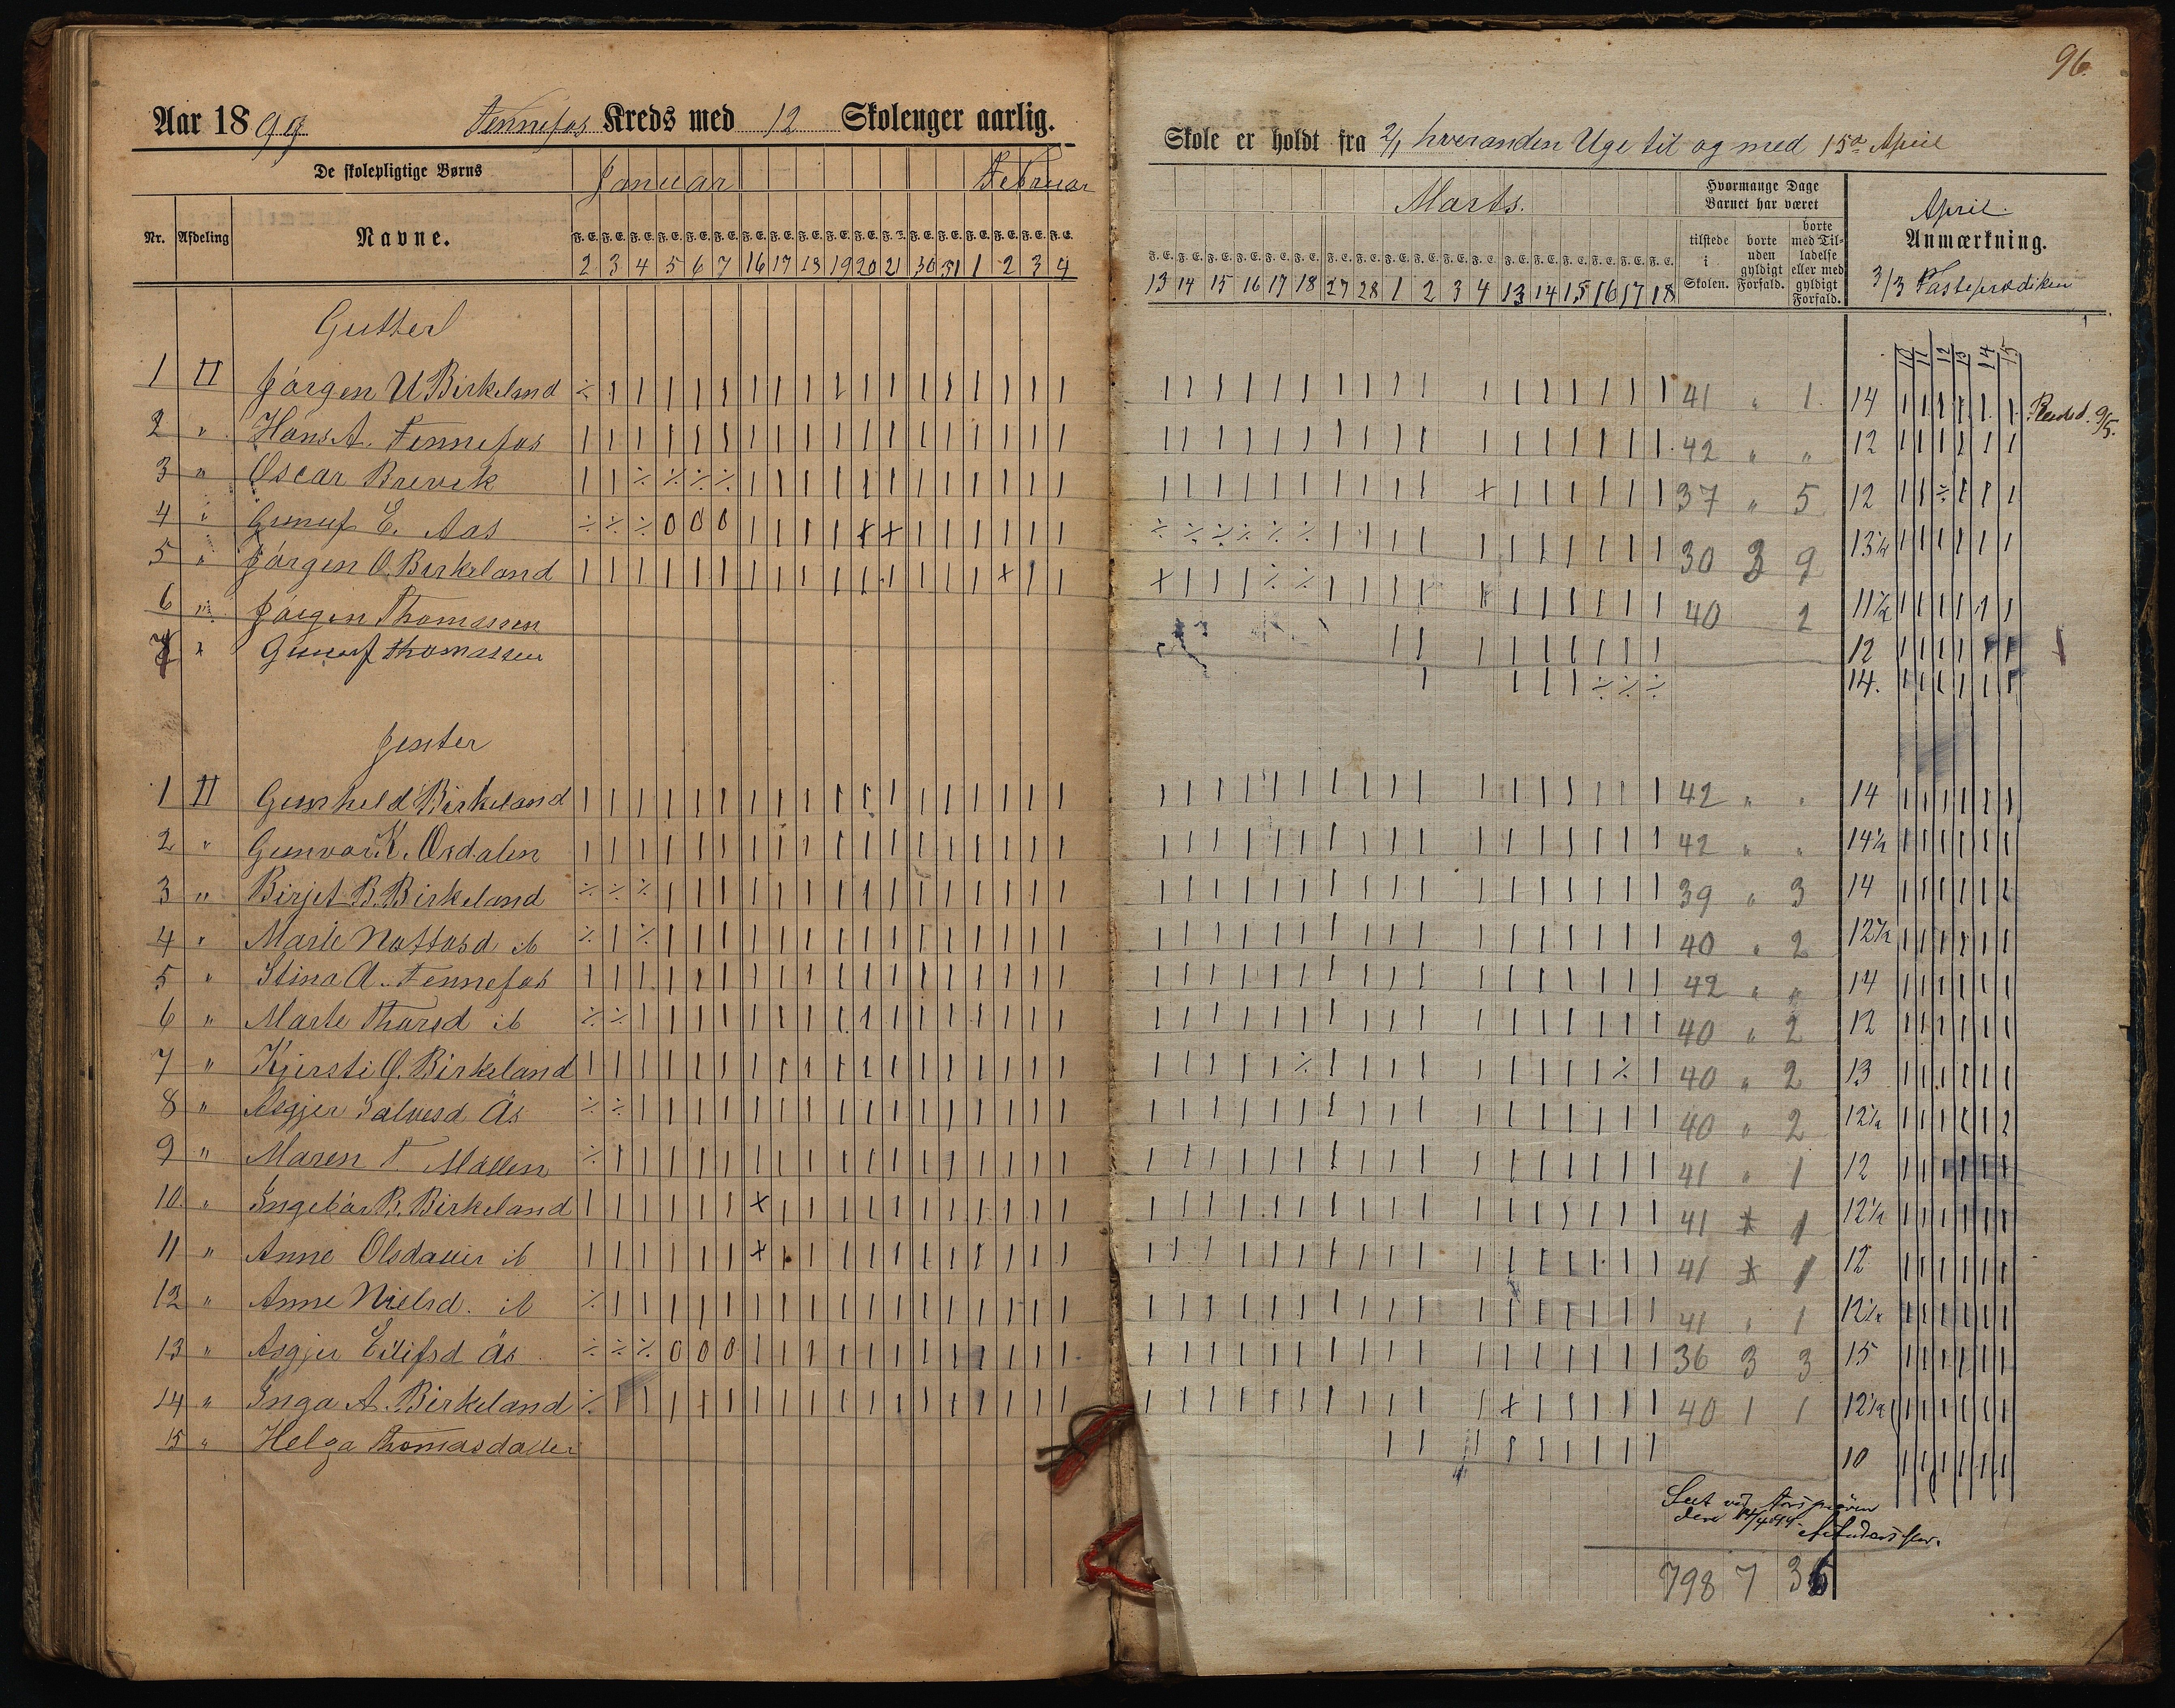 96
Aar 1899 Fennefos Kreds med 12 Skoleuger aarlig.
Skole er holdt fra 2/1 hveranden Uge til og med 15de April
De skolepligtige Børns
Januar Februar
Marts.
Hvormange Dage Barnet har været
April.
Nr. Afdeling Navne.
F. E. F. E. F. E. F. E. F. E. F. E. F. E. F. E. F. E. F. E. F. E. F. E. F. E. F. E. F. E. F. E. F. E. F. E.
2 3 4 5 6 7 16 17 18 19 20 21 30 31 1 2 3 4
F. E. F. E. F. E. F. E. F. E. F. E. F. E. F. E. F. E. F. E. F. E. F. E. F. E. F. E. F. E. F. E. F. E. F. E.
13 14 15 16 17 18 27 28 1 2 3 4 13 14 15 16 17 18
tilstede i Skolen.
borte uden gyldigt Forfald.
borte med Tilladelse eller med gyldigt Forfald.
Anmærkning.
3/3 Fasteprædiken
10 11 12 13 14 15
Gutter
1 II Jørgen U Birkeland 41 " 1. 14
9/5.
2 " Hans A. Fennefos 42 " " 12
3 " Oscar Brevik 37 " 5 12
4 " Gunuf E. Aas 30 3 9 13 1/2
5 " Jørgen O. Birkeland 40 2 11 1/2
6 " Jørgen Thomassen 12
7 " Gunuf Thomassen 14.
Jenter
1 II Gunhild Birkeland 42 " " 14
2 " Gunvor K. Osdalen 42 " " 14 1/2
3 " Birjet B. Birkeland 39 " 3 14
4 " Marie Nottosd ib 40 " 2 12 1/2
5 " Stina A. Fennefos 42 " " 14
6 " Marte Thorsd ib 40 " 2 12
7 " Kjersti O. Birkeland 40 " 2 13
8 " Asgjer Salvesd Ås 40 " 2 12 1/2
9 " Maren T. Mollen 41 " 1 12
10 " Ingebør R. Birkeland 41 1 12 1/2
11 " Anne Olsdatter ib 41 1 12
12 " Anne Nielsd. ib 41 " 1 12 1/2
13 " Asgjer Eilifsd Ås 36 3 3 15
14 " Inga A. Birkeland 40 1 1 12 1/2
15 " Helga Thomasdatter 10
Seet ved Aarsprøven
den 14/4 99.
798 7 36